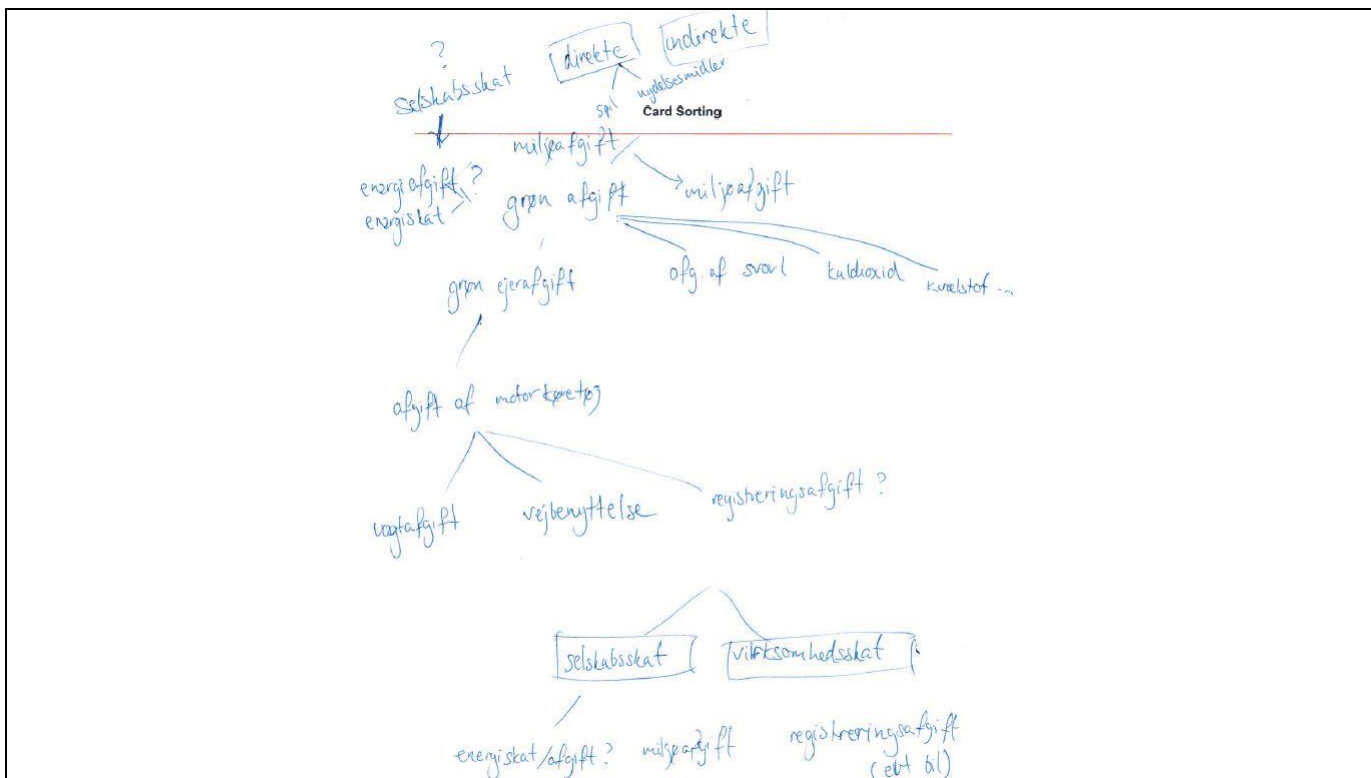 ?
selskabsskat
direkte
indirekte
spil
nydelsesmidler
Card Sorting
miljøafgift
energiafgift ?
energiskat
grøn afgift
miljøafgift
grøn ejerafgift
afg. af svovl
kuldioxid
kvælstof ...
afgift af motorkøretøj
vægtafgift
vejbenyttelse
registreringsafgift ?
selskabsskat
virksomhedsskat
energiskat/afgift ?
miljøafgift
registreringsafgift
(evt bil)